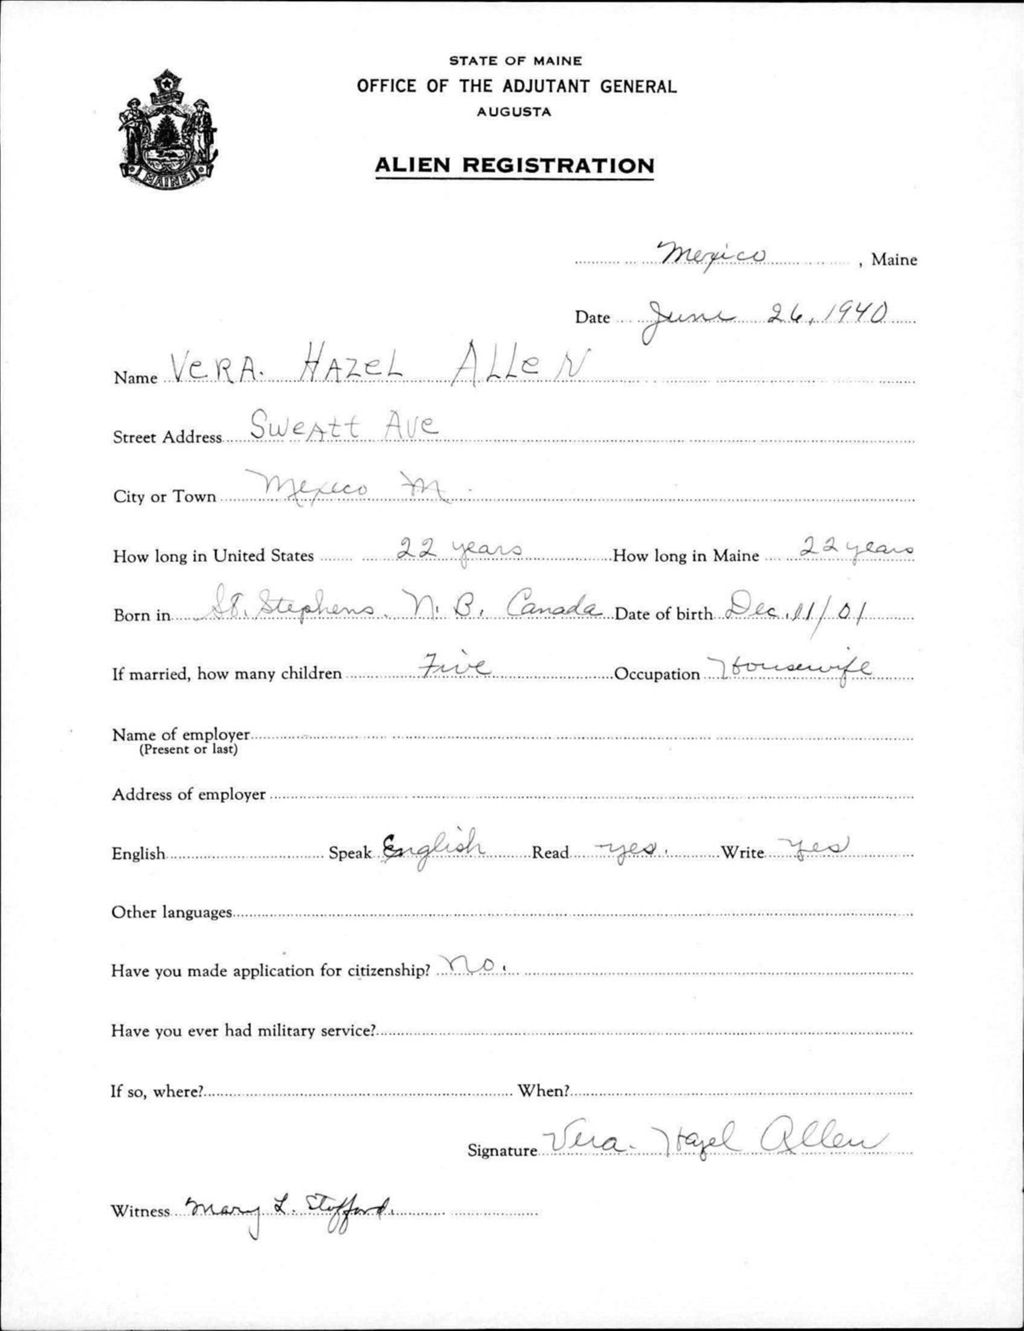 STATE OF MAINE
OFFICE OF THE ADJUTANT GENERAL
AUGUSTA
ALIEN REGISTRATION
MAINE
Mexico, Maine
Date June 26, 1940
Name VeRA. HAZeL ALLeN
Street Address Sweatt Ave
City or Town Mexico M.
How long in United States 22 years How long in Maine 22 years
Born in St. Stephens. N. B. Canada Date of birth Dec. 11/01
If married, how many children Five Occupation Housewife
Name of employer
(Present or last)
Address of employer
English Speak English Read yes. Write yes
Other languages
Have you made application for citizenship? No.
Have you ever had military service?
If so, where? When?
Signature Vera. Hazel Allen
Witness Mary L.